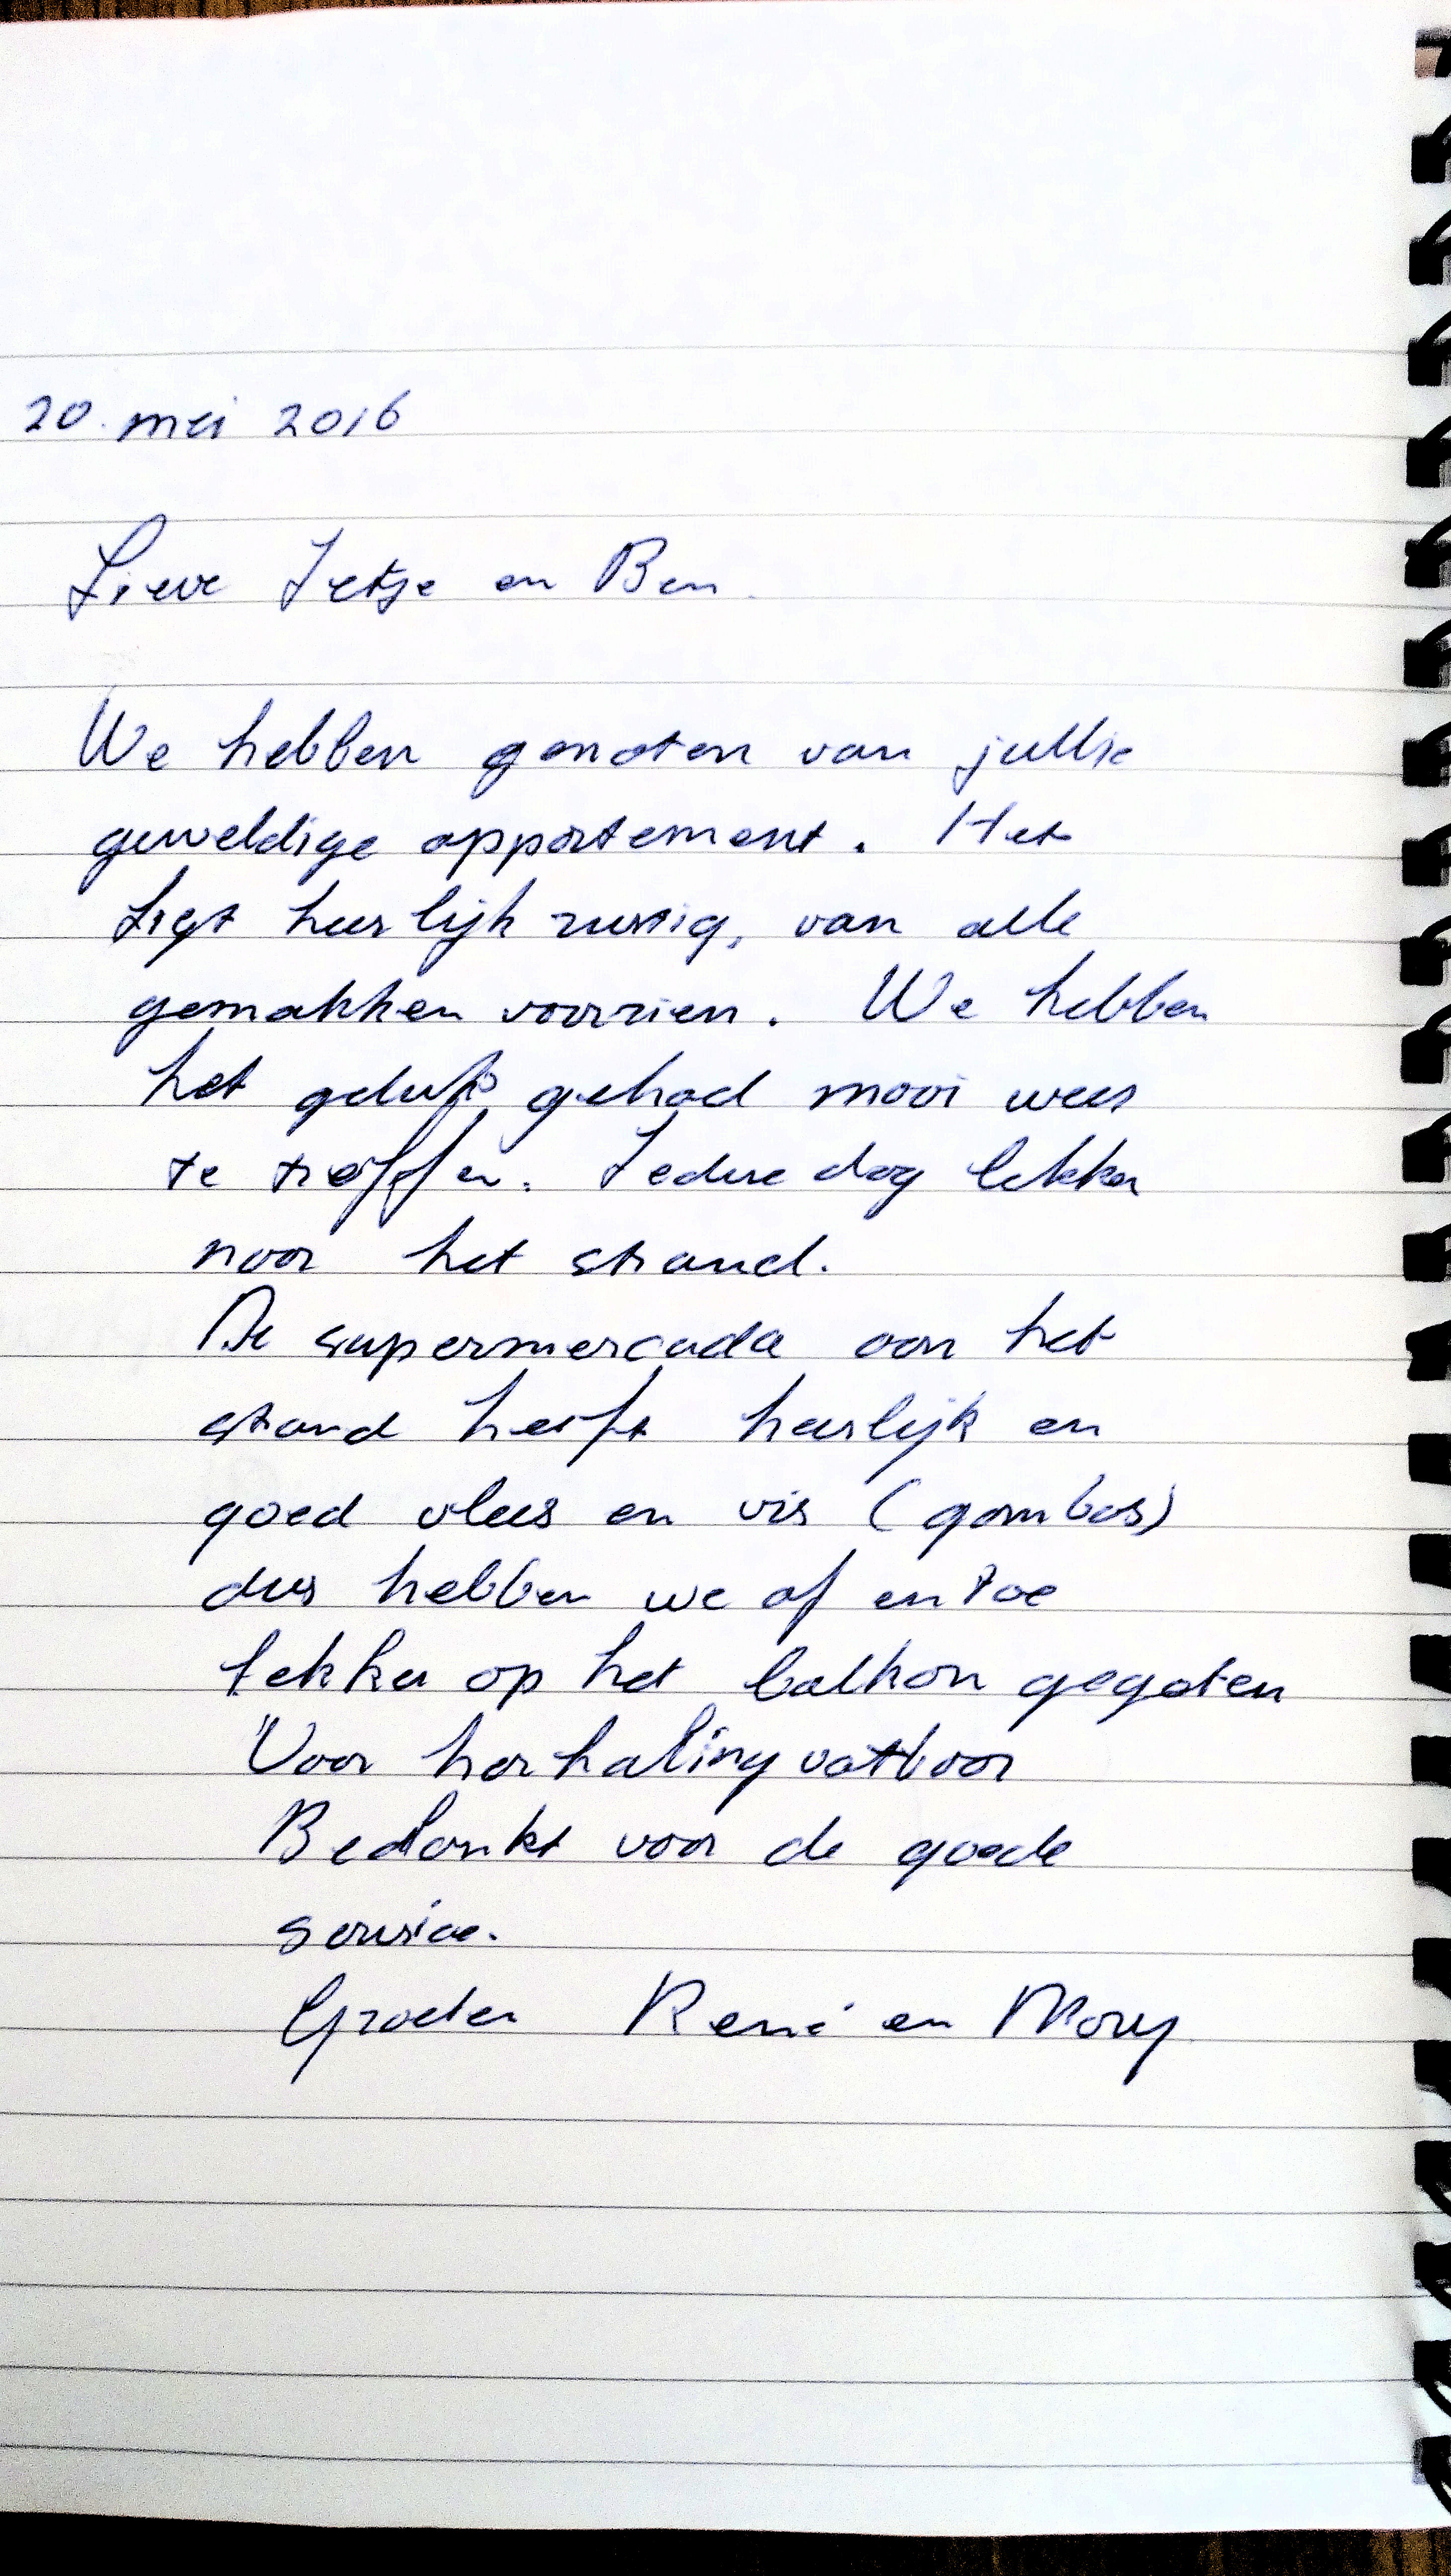 20 mei 2016
Lieve Ietje en Ben.
We hebben genoten van jullie
geweldige appartement. Het
ligt heerlijk rustig, van alle
gemakken voorzien. We hebben
het geluk gehad mooi weer
te treffen. Iedere dag lekker
naar het strand.
De supermercada aan het
strand heeft heerlijk en
goed vlees en vis (gambas)
dus hebben we af en toe
lekker op het balkon gegeten
Voor herhaling vatbaar
Bedankt voor de goede
service.
Groeten René en Mary